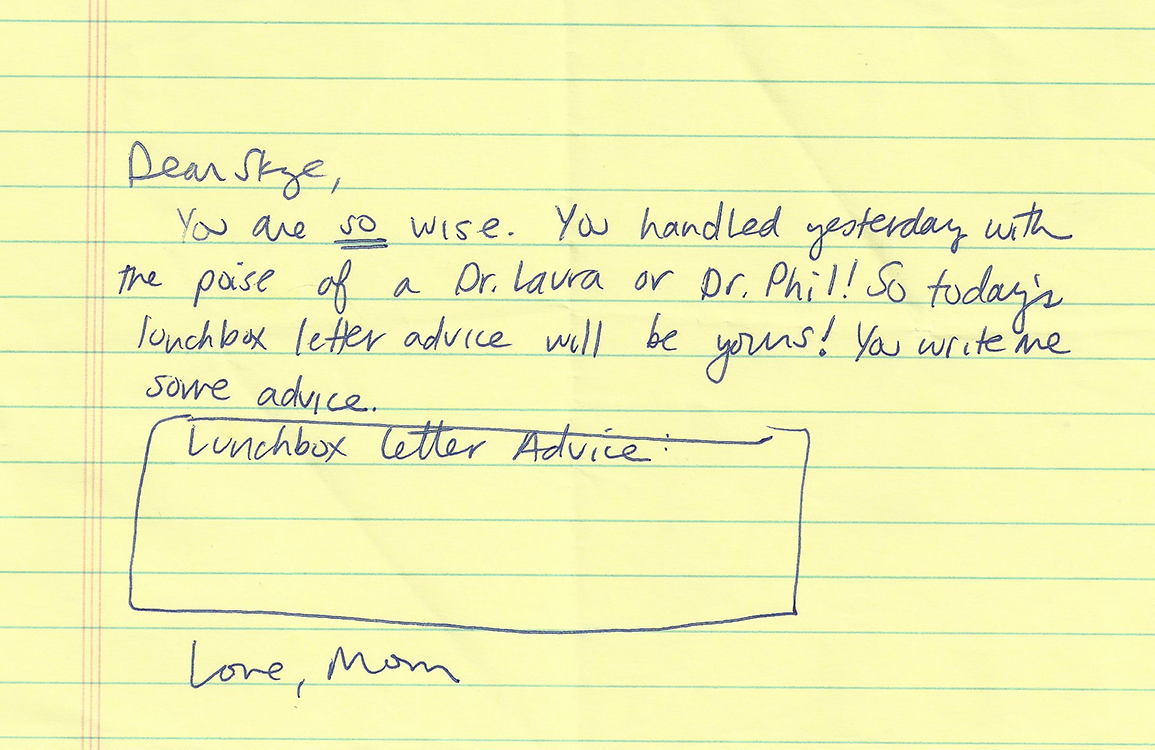 Dear Skye,
You are so wise. You handled yesterday with
the poise of a Dr. Laura or Dr. Phil! So today's
lunchbox letter advice will be yours! You write me
some advice.
Lunchbox Letter Advice:
Love, Mom